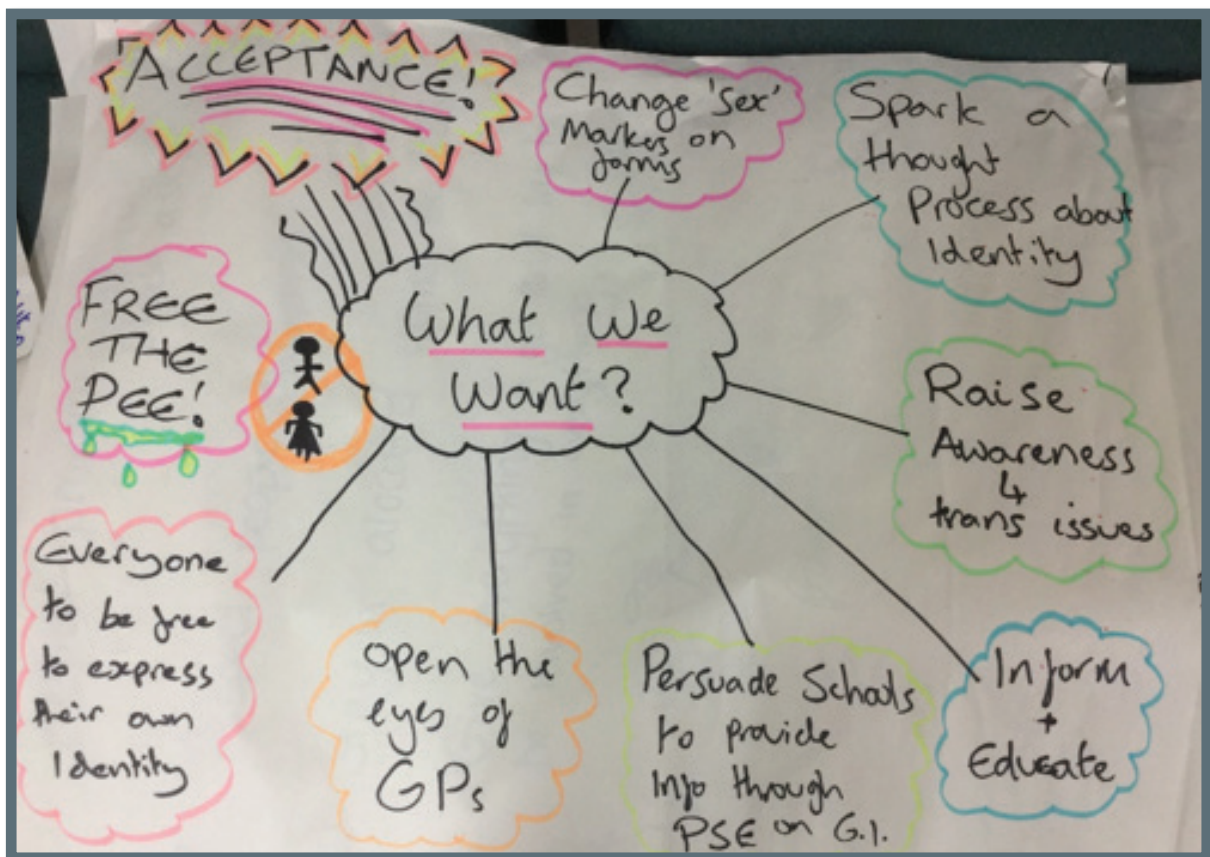 ACCEPTANCE!
Change 'Sex'
Markers on
forms
Spark a
thought
Process about
Identity
FREE
THE
PEE!
What We
Want?
Raise
Awareness
4
trans issues
Everyone
to be free
to express
their own
Identity
open the
eyes of
GPs
Persuade Schools
to provide
Info through
PSE on G.I.
Inform
+
Educate